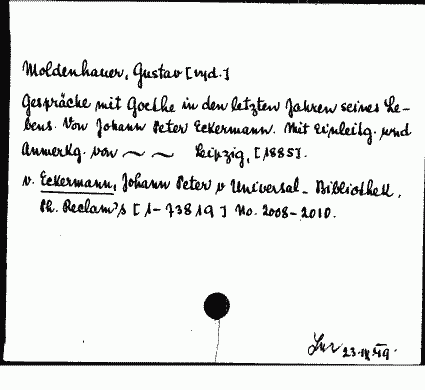 Moldenhauer, Gustav [wyd.]
Gespräche mit Goethe in den letzten Jahren seines Le-
bens. Von Johann Peter Eckermann. Mit Einleitg. und
Anmerkg. von ~ ~ Leipzig, [1885].
v. Eckermann, Johann Peter v Universal-Bibliothek,
Ph. Reclam's [1-73819] No. 2008-2010.